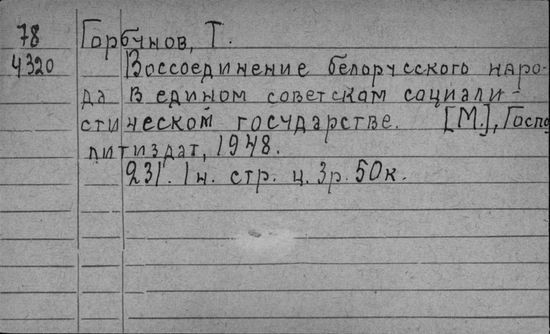 78 Горбунов, Т.
4320 Воссоединение белорусского наро-
да в едином советском социали-
стическом государстве. [М.], Госпо
литиздат, 1948.
231. 1 н. стр. ц. 3 р. 50 к.